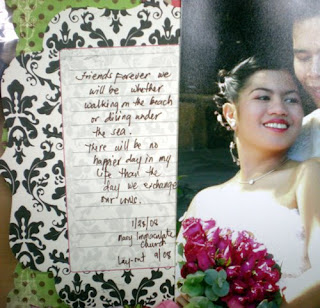 Friends forever we
will be whether
walking on the beach
or diving under
the sea.
There will be no
happier day in my
life than the
day we exchange
our vows.
1/28/08
Mary Immaculate
Church
Lay-out 9/08